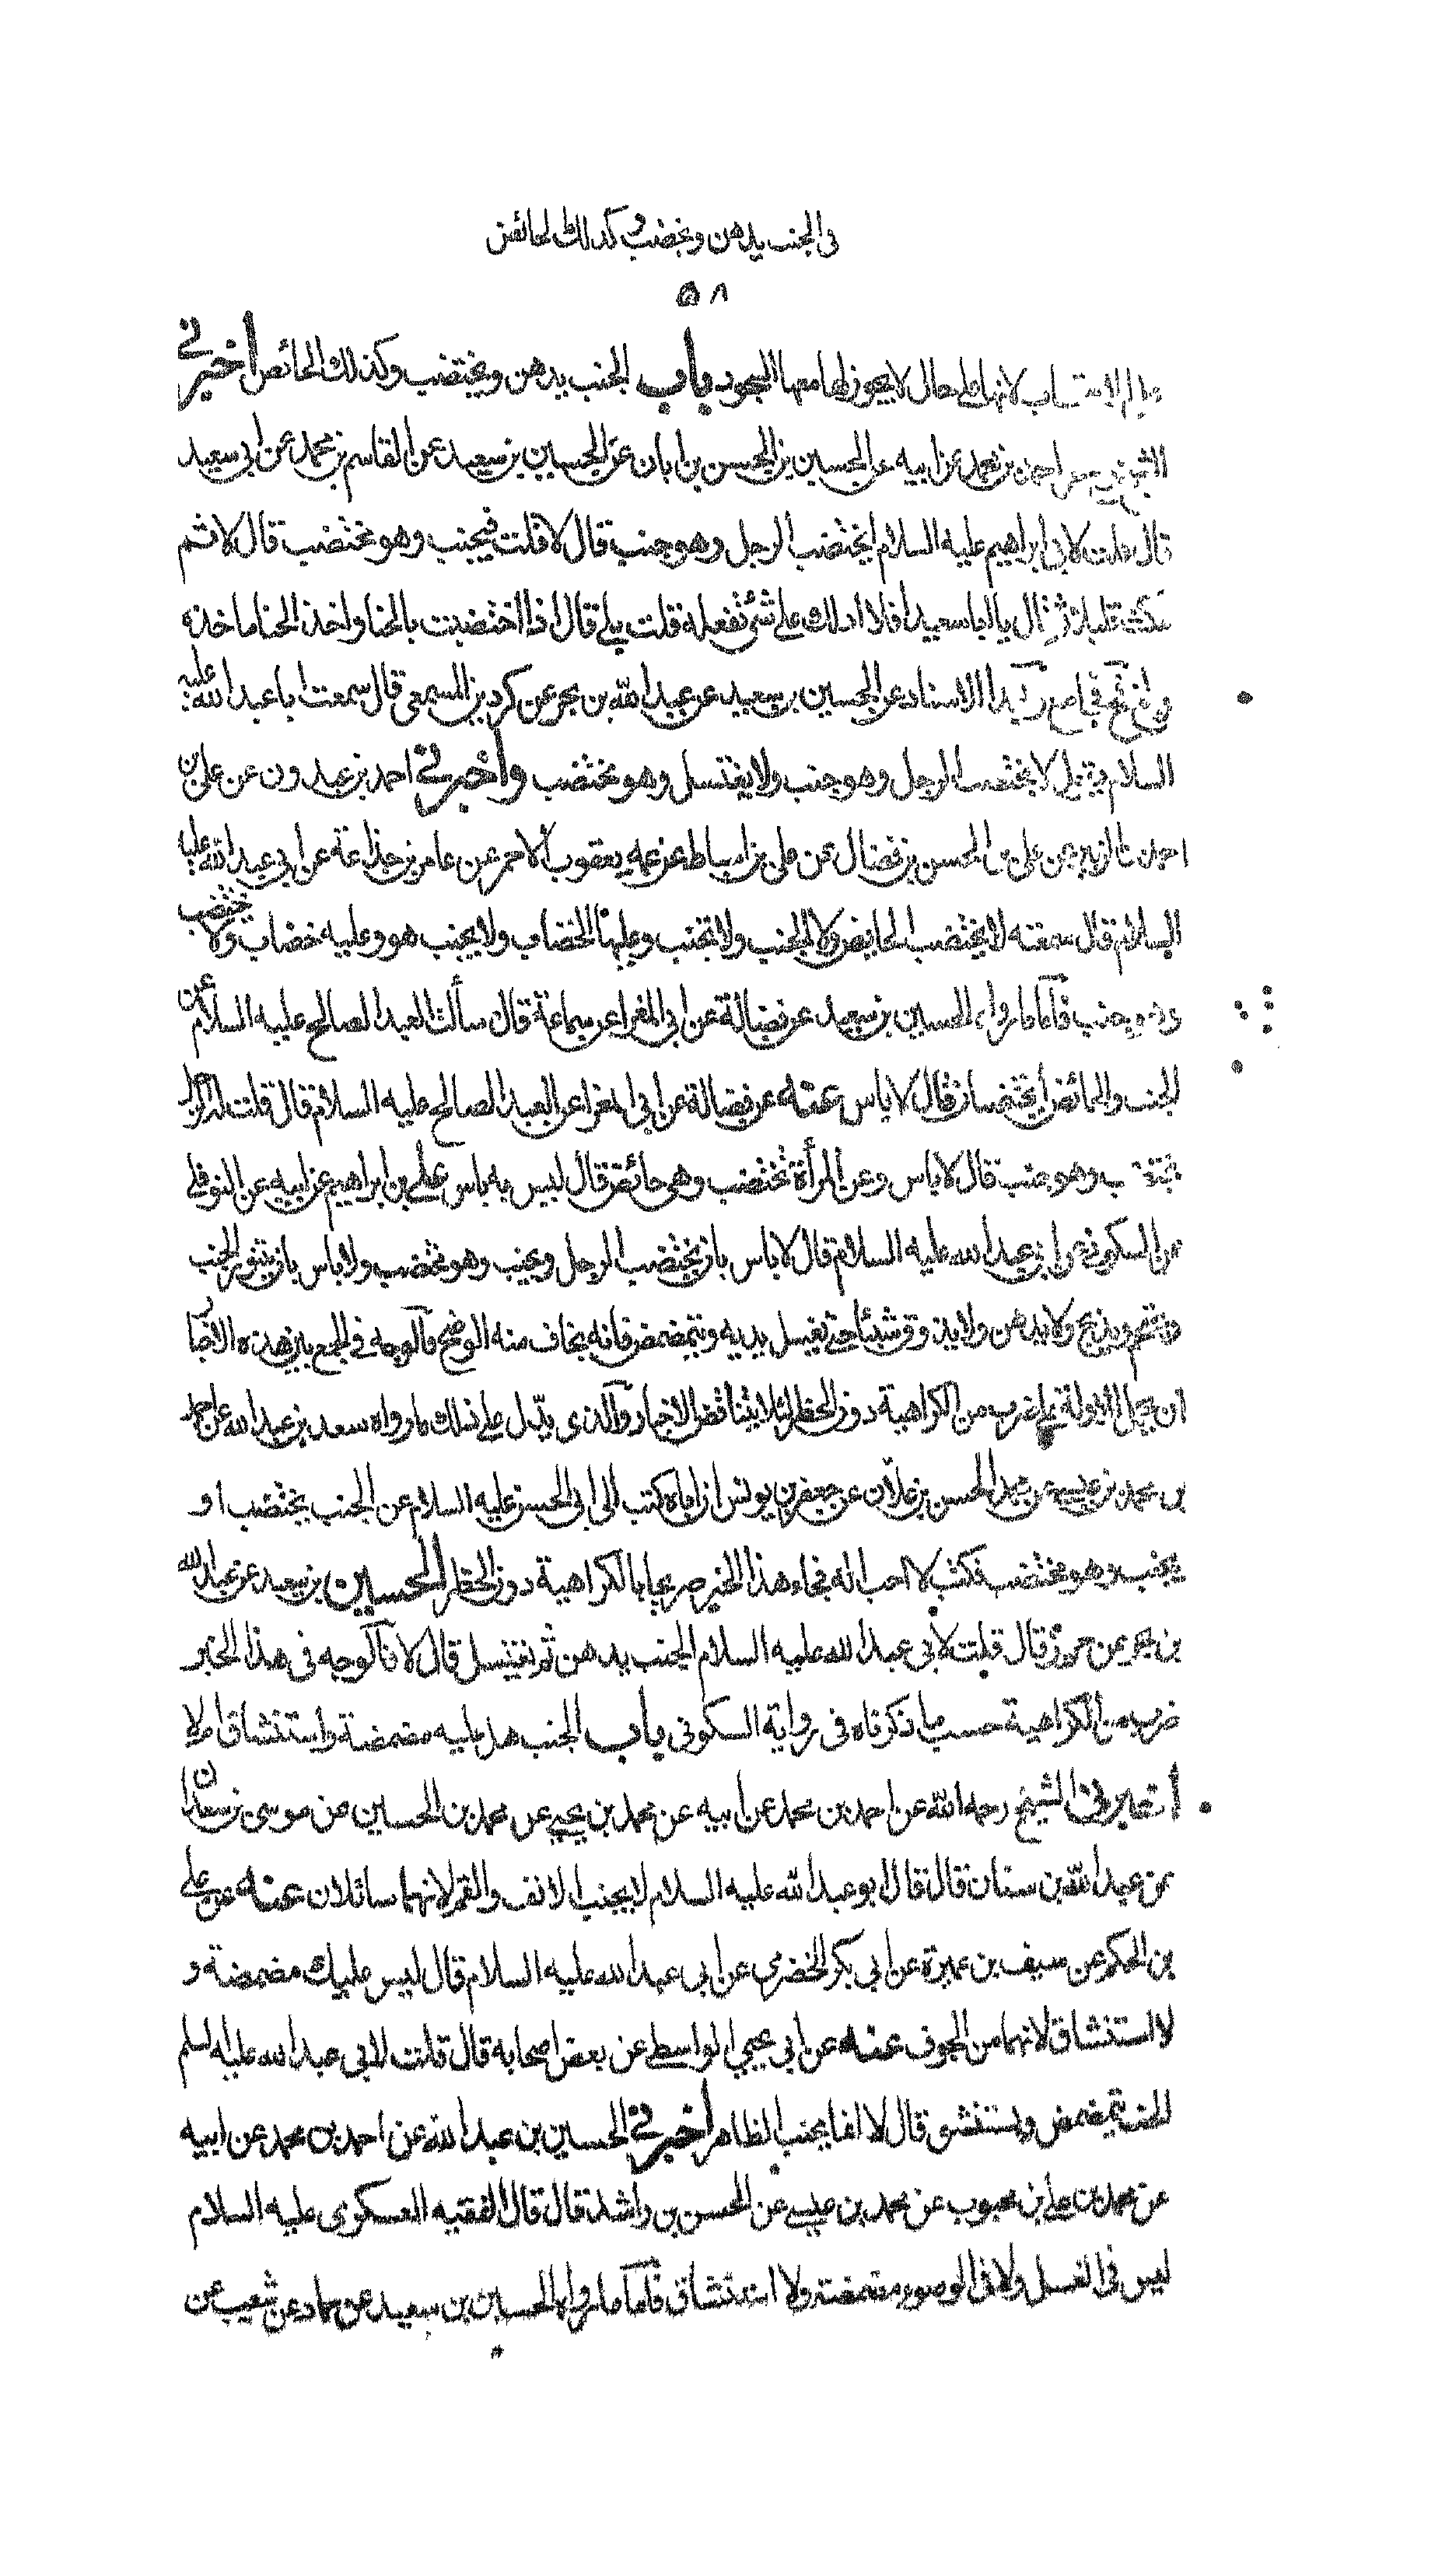 فى الجنب يدهن ويخضب وكذلك الحائض
٥٨
على الاستحباب لانها على حال لا يجوز لها معها السجود باب الجنب يدهن ويختضب وكذلك الحائض أخبرني
الشيخ عن احمد بن محمد عن ابيه عن الحسين بن الحسن بن ابان عن الحسين بن سعيد عن القاسم بن محمد عن ابى سعيد
قال قلت لابى ابراهيم عليه السلام ايختضب الرجل وهو جنب قال لا قلت فيجنب وهو مختضب قال لا ثم
سكت قليلا ثم قال يا ابا سعيد افلا ادلك على شئ تفعله قلت بلى قال اذا اختضبت بالحنا واخذ الحنا ماخذه
وبلغ فح فجامع وبهذا الاسناد عن الحسين بن سعيد عن عبد الله بن بحر عن كردين المسمعى قال سمعت ابا عبد الله عليه
السلام يقول لا يختضب الرجل وهو جنب ولا يغتسل وهو مختضب وأخبرني احمد بن عبدون عن على بن
احمد بن الزبير عن على بن الحسن بن فضال عن على بن اسباط عن عمه يعقوب الاحمر عن عامر بن جذاعة عن ابى عبد الله عليه
السلام قال سمعته لا يختضب الحايض ولا الجنب ولا تجنب وعليها الخضاب ولا يجنب هو وعليه خضاب ولا يختضب
وهو جنب فأما ما رواه الحسين بن سعيد عن فضالة عن ابى المغرا عن سماعة قال سألت العبد الصالح عليه السلام عن
الجنب والحائض أيختضبان قال لا باس عنه عن فضالة عن ابى المغرا عن العبد الصالح عليه السلام قال قلت له الرجل
يختضب وهو جنب قال لا باس وعن المرأة تختضب وهى حائض قال ليس به باس على بن ابراهيم عن ابيه عن النوفلى
عن السكونى عن ابى عبد الله عليه السلام قال لا باس بان يختضب الرجل ويجنب وهو مختضب ولا باس بان يتنور الجنب
ويحتجم ويذبح ولا يدهن ولا يذوق شيئا حتى يغسل يديه ويتمضمض فانه يخاف منه الوضح فالوجه فى الجمع بين هذه الاخبار
ان نحمل الاولة على ضرب من الكراهية دون الحظر لئلا يتناقض الاخبار والذى يدل على ذلك ما رواه سعد بن عبد الله عن احمد
بن محمد بن عيسى عن عبد الحسن بن علان عن جعفر بن يونس ان اباه كتب الى ابى الحسن عليه السلام عن الجنب يختضب او
يجنب وهو مختضب فكتب لا احب له فجاء هذا الخبر صريحا بالكراهية دون الحظر الحسين بن سعيد عن عبد الله
بن بحر عن حريز قال قلت لابى عبد الله عليه السلام الجنب يدهن ثم يغتسل قال لا فالوجه فى هذا الخبر
ضرب من الكراهية حسب ما ذكرناه فى رواية السكونى باب الجنب هل عليه مضمضة واستنشاق ام لا
أخبرنى الشيخ رحمه الله عن احمد بن محمد عن ابيه عن محمد بن يحيى عن محمد بن الحسين عن موسى بن سعدان
عن عبد الله بن سنان قال قال ابو عبد الله عليه السلام لا يجنب الانف والفم لانهما سائلان عنه عن على
بن الحكم عن سيف بن عميرة عن ابى بكر الحضرمى عن ابى عبد الله عليه السلام قال ليس عليك مضمضة و
لا استنشاق لانهما من الجوف عنه عن ابى يحيى الواسطى عن بعض اصحابه قال قلت لابى عبد الله عليه السلم
الجنب يتمضمض ويستنشق قال لا انما يجنب الظاهر أخبرنى الحسين بن عبد الله عن احمد بن محمد عن ابيه
عن محمد بن على بن محبوب عن محمد بن عيسى عن الحسن بن راشد قال قال الفقيه العسكرى عليه السلام
ليس فى الغسل ولا فى الوضوء مضمضة ولا استنشاق فأما ما رواه الحسين بن سعيد عن حماد عن شعيب عن